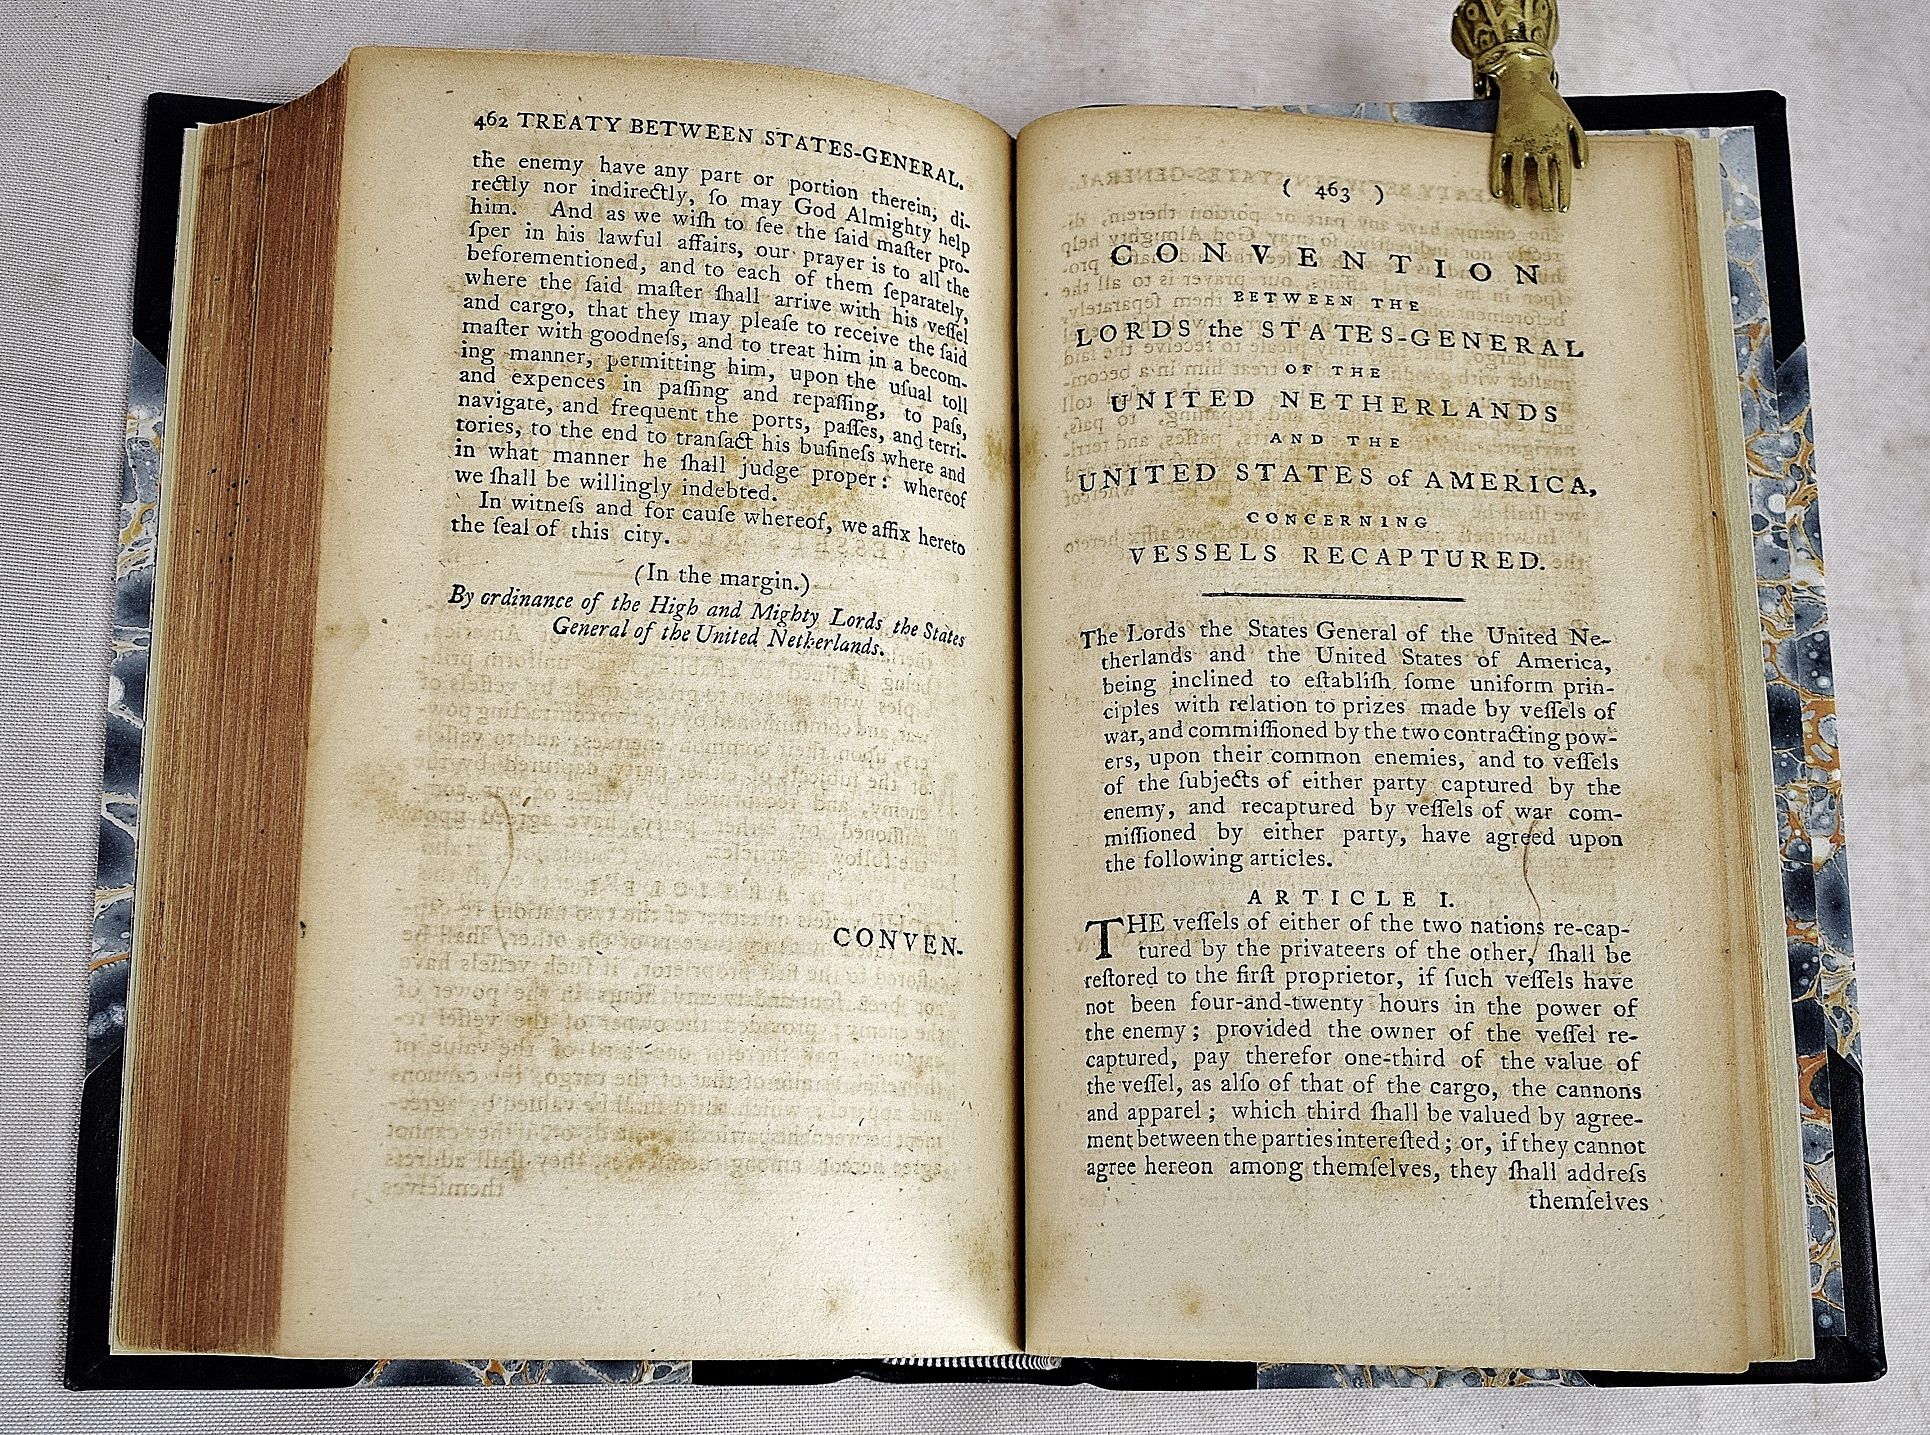 462 TREATY BETWEEN STATES-GENERAL.
the enemy have any part or portion therein, di-
rectly nor indirectly, ſo may God Almighty help
him. And as we wiſh to ſee the ſaid maſter pro-
ſper in his lawful affairs, our prayer is to all the
beforementioned, and to each of them ſeparately,
where the ſaid maſter ſhall arrive with his veſſel
and cargo, that they may pleaſe to receive the ſaid
maſter with goodneſs, and to treat him in a becom-
ing manner, permitting him, upon the uſual toll
and expences in paſſing and repaſſing, to paſs,
navigate, and frequent the ports, paſſes, and terri-
tories, to the end to tranſact his buſineſs where and
in what manner he ſhall judge proper: whereof
we ſhall be willingly indebted.
In witneſs and for cauſe whereof, we affix hereto
the ſeal of this city.
(In the margin.)
By ordinance of the High and Mighty Lords the States
General of the United Netherlands.
CONVEN-
( 463 )
CONVENTION
BETWEEN THE
LORDS the STATES-GENERAL
OF THE
UNITED NETHERLANDS
AND THE
UNITED STATES of AMERICA,
CONCERNING
VESSELS RECAPTURED.
The Lords the States General of the United Ne-
therlands and the United States of America,
being inclined to eſtabliſh ſome uniform prin-
ciples with relation to prizes made by veſſels of
war, and commiſſioned by the two contracting pow-
ers, upon their common enemies, and to veſſels
of the ſubjects of either party captured by the
enemy, and recaptured by veſſels of war com-
miſſioned by either party, have agreed upon
the following articles.
ARTICLE I.
THE veſſels of either of the two nations re-cap-
tured by the privateers of the other, ſhall be
reſtored to the firſt proprietor, if ſuch veſſels have
not been four-and-twenty hours in the power of
the enemy; provided the owner of the veſſel re-
captured, pay therefor one-third of the value of
the veſſel, as alſo of that of the cargo, the cannons
and apparel; which third ſhall be valued by agree-
ment between the parties intereſted; or, if they cannot
agree hereon among themſelves, they ſhall addreſs
themſelves